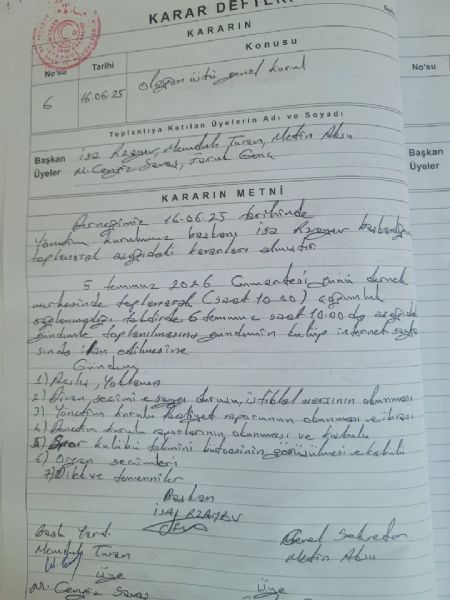 KARAR DEFTERİ
KARARIN
No'su Tarihi Konusu
6 16.06.25 olağan üstü genel kurul
Toplantıya Katılan Üyelerin Adı ve Soyadı
Başkan İsa Memduh Turan, Metin Aksu
Üyeler M. Cengiz Savaş, Faruk Genç
KARARIN METNİ
Derneğimiz 16-06.25 tarihinde
Yönetim kurulumuz başkanı İsa başkanlığında
toplanarak aşağıdaki kararları almıştır.
5 temmuz 2026 Cumartesi günü dernek
merkezinde toplanarak (saat 10.00) çoğunluk
sağlanmadığı takdirde 6 temmuz saat 10.00 da aşağıdaki
gündemle toplanılmasına gündemin kulüp internet sayfa
sında ilan edilmesine
Gündem
1) Açılış, Yoklama
2) Divan seçimi ve saygı duruşu, istiklal marşının okunması
3) Yönetim kurulu faaliyet raporunun okunması ve ibrası
4) Denetim kurulu raporlarının okunması ve kabulu
5) Spor kulübü tahmini bütçesinin görüşülmesi ve kabulu
6) Organ seçimleri
7) Dilek ve temenniler
Başkan
İSA
Başk Yard. Genel Sekreter
Memduh Turan Metin Aksu
Üye Üye
M. Cengiz Savaş
No'su
Başkan
Üyeler